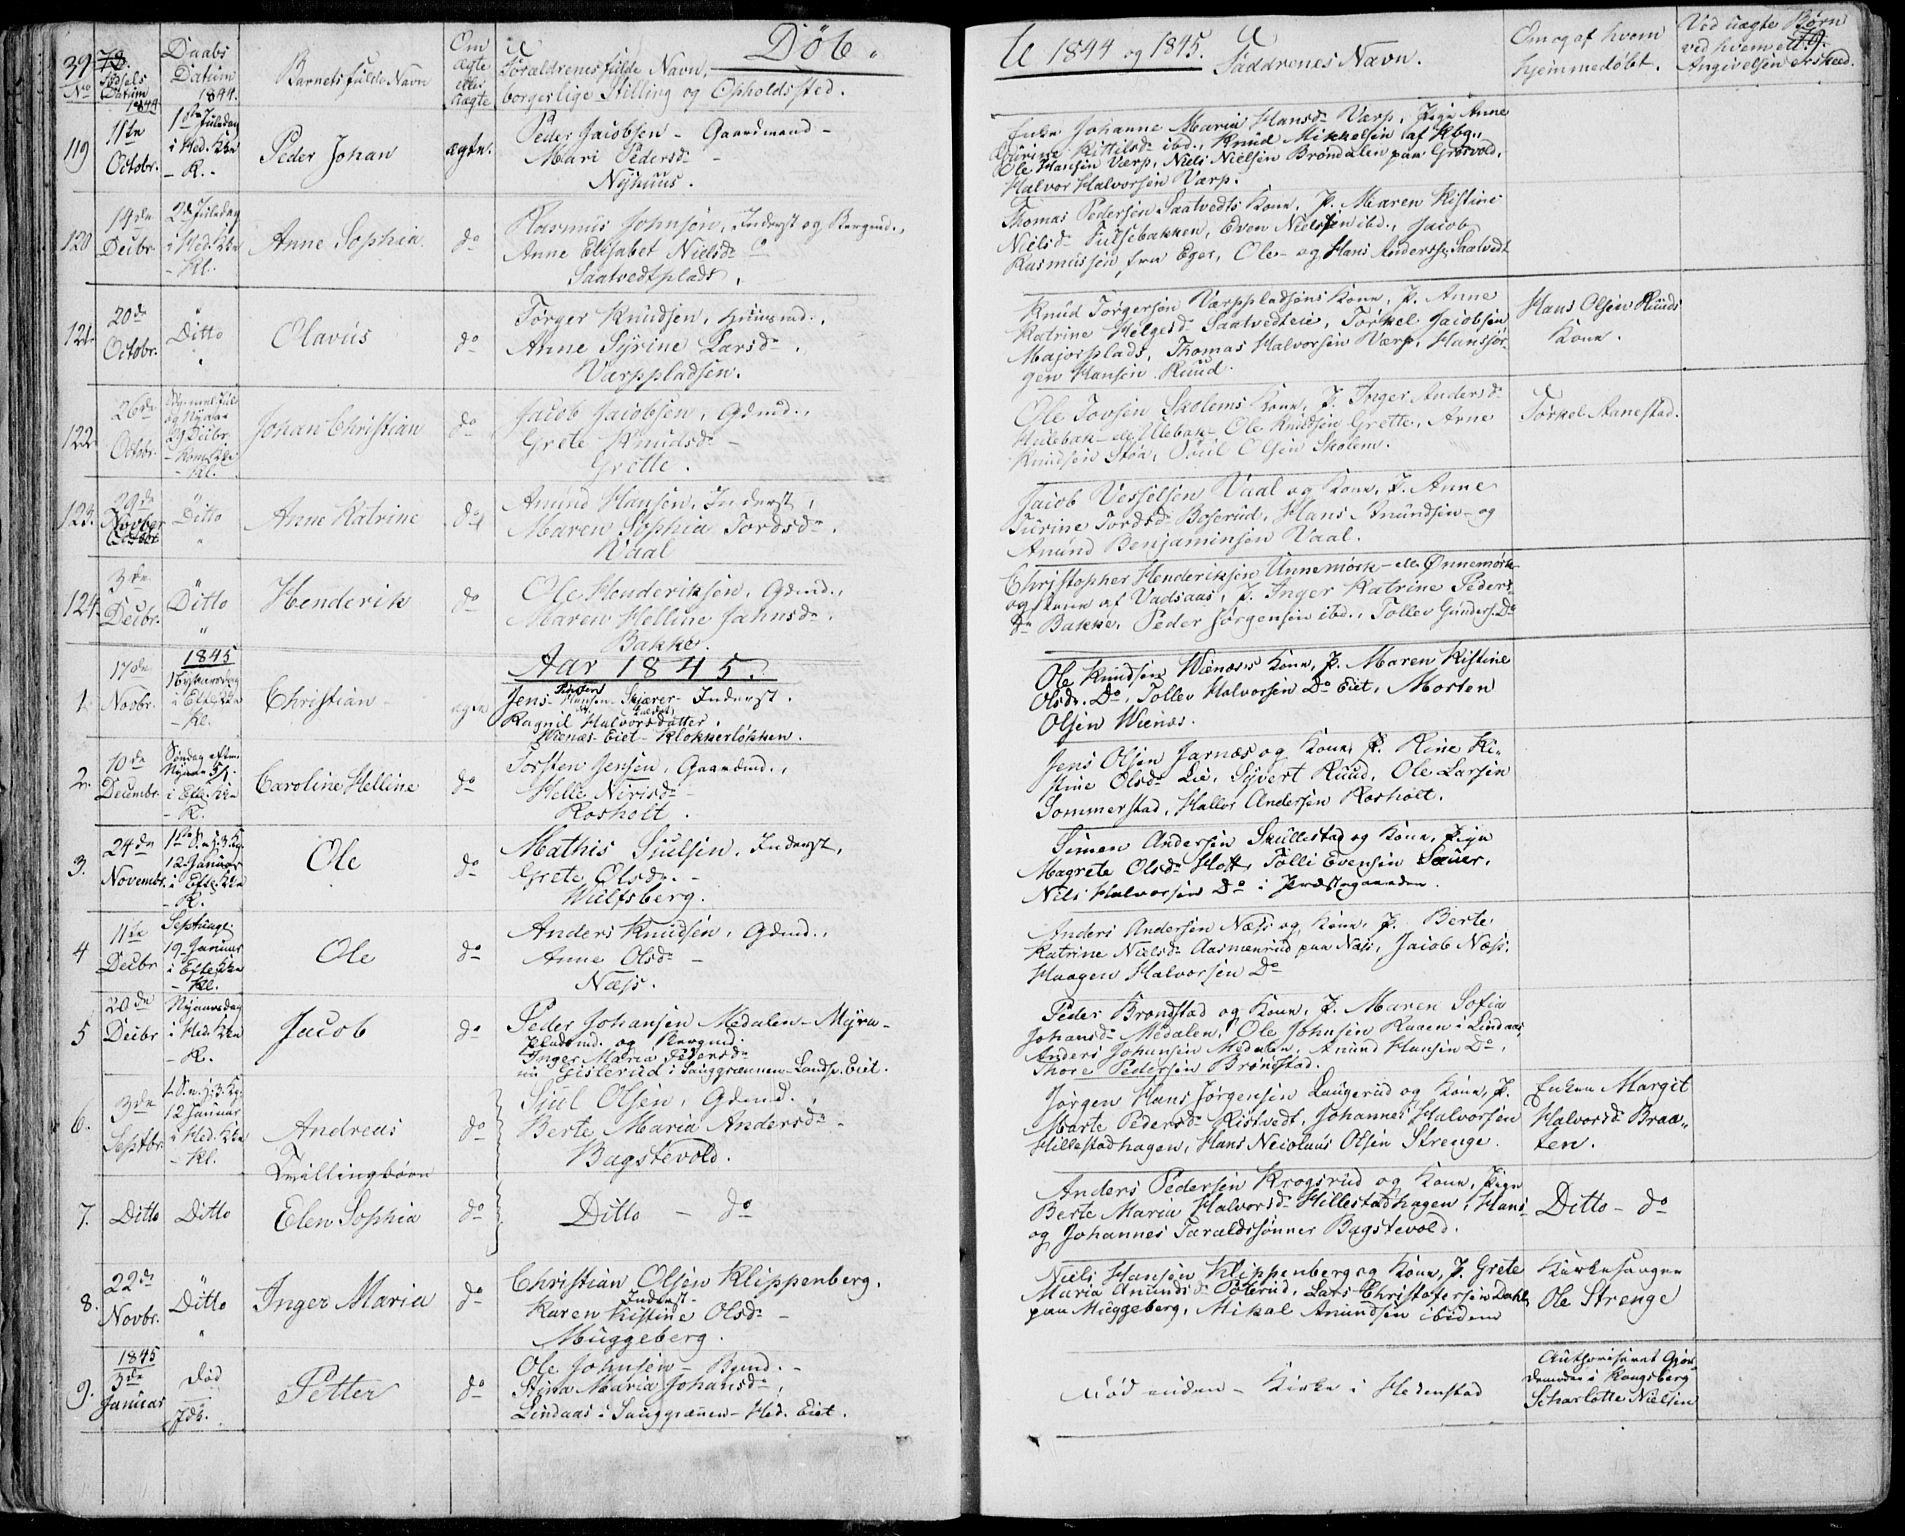 39 78.
Døb.
No
Fødsels Datum 1844
Daabs Datum 1844.
Barnets fulde Navn
Om ægte eller uægte
Foraldrenes fulde Navn,
borgerlige Stilling og Opholdssted.
119
11te Octobr.
1ste Juledag
i Hed. Kke
- K. -
Peder Johan
ægte.
Peder Jacobsen - Gaardmand -
Mari Pedersdr -
Nyhuus.
120
14de Decbr.
2d Juledag
i Hed. Kke
- Kl.
Anne Sophia
do
Rasmus Johnsen, Inderst og Bergmd.,
Anne Elisabet Nielsdr
Saatvedtplads.
121.
20de Octobr.
Ditto
Olavus
do
Torger Knudsen, Huusmd.,
Anne Syrine Larsdr.
Værppladsen.
122.
26de Octobr.
og Nyaar
29 Decbr.
- Kl.
Johan Christian
do
Jacob Jacobsen, Gdmd.,
Grete Knudsdr -
Grette.
123.
29de Novber
Octobr
Ditto
Anne Katrine
do
Amund Hansen, Inderst,
Maren Sophia Tordsdr.
Vaal
124.
3de Decbr.
Ditto
Henderik
do
Ole Henderiksen, Gdmd.,
Maren Helline Jahnsdr.
Bakke.
1845
Aar 1845.
1.
17de Novbr.
1 Nytaarsdag
i Efte. Kke
- Kl.
Christian
ægte
Jens Hansen Skjærer - Inderst.
Ragnil Halvorsdatter,
Wienæs Eiet - Klokkerløkken.
2.
10de Decembr.
Søndag efter
Nyaar 5/1.
i Efte. Kke
- K.
Caroline Helline
do
Torsten Jensen, Gaardmd.,
Helle Nirisdr -
Rosholt.
3.
24de Novembr.
12 Januar
i Efte. Kke
- K.
Ole
do
Mathis Siulsen, Inderst,
Grete Olsdr. -
Wulfsberg.
4
11te Decbr
Septuag.
19 Januar
i Efte. Kke
- Kl.
Ole
do
Anders Knudsen, Gdmd.,
Anne Olsdr -
Næss.
5
20de Decbr
Nyaarsdag
i Hed. Kke
- K.
Jacob
do
Peder Johansen Medalen - Myra -
Pladsmd. og Bergmd.
Inger Maria Pedersdr
nu Gislerud i Sauggrænnen - Landsv. Eiet.
6.
3de Septbr.
12 Januar
i Hed. Kke
- Kl.
Andreas
do
Siul Olsen, Gdmd.,
Berte Maria Andersdr -
Bagstevold.
Tvillingbørn
7.
Ditto
Ditto
Elen Sophia
do
Ditto - do
8.
22de Novbr.
Ditto
Inger Maria
do
Christian Olsen Klippenberg.
Inderst -
Karen Kistine Olsdr -
Muggeberg.
9.
1845
3de Januar
død
Jdb.
Petter
do
Ole Johnsen - Bgmd. -
Stina Maria Johansdr,
Lindaas i Sauggrænnen - Hed. Eiet.
U 1844 og 1845.
79.
Faddrenes Navn.
Om og af hvem
hjemmedøbt.
Ved uægte Børn
ved hvem ell.
Angivelsen er skeed.
Enke Johanne Maria Hansdr Værp, Pige Anne
Kittilsdr ibd., Knud Mikkelsen af Kbg.,
Ole Hansen Værp, Niels Nielsen Brøndalen paa Grosvold,
Halvor Halvorsen Værp.
Thomas Pedersen Saatvedts Kone, P. Maren Kistine
Nielsdr Fulsebakken, Even Nielsen ibd., Jacob
Rasmussen fra Eger, Ole - og Hans Anderssr. Saatvedt
Knud Torgersen Værppladsens Kone, P. Anne
Katrine Helgesdr Saatvedteie, Torkel Jacobsen
Majorplads, Thomas Halvorsen Værp, Hansjør-
gen Hansen Ruud.
Hans Olsen Ruuds
Kone.
Ole Tovsen Skolems Kone, P. Inger Andersdr
Hulebak - ell. Ulebak - Ole Knudsen Grette, Arne
Knudsen Støa, Poul Olsen Skolem.
Torkel Aanestad.
Jacob Vesselsen Vaal og Kone, P. Anne
Turine Tordsdr Boserud, Hans Amundsen - og
Amund Benjaminsen Vaal.
Christopher Henderiksen Unnemørk - ell. Ønnemørk
og Kone af Vadsaas, P. Inger Katrine Peders-
dr Bakke, Peder Jørgensen ibd., Tollev Gunders. Do
Ole Knudsen Wienæs Kone, P. Maren Kistine
Olsdr. Do, Tollev Halvorsen Do Eiet, Morten
Olsen Wienæs.
Jens Olsen Jarnæs og Kone, P. Kine Ki-
stine Olsdr Lie, Syvert Ruud, Ole Larsen
Sommerstad, Hallor Andersen Rosholt.
Simen Andersen Skullestad og Kone, Pige
Magrete Olsdr Hott, Tolli Evensen Sauer,
Nils Halvorsen Do i Præstegaarden.
Anders Andersen Næss og Kone, P. Berte
Katrine Nielsdr Aasmenrud paa Næss, Jacob Næss,
Haagen Halvorsen Do
Peder Brondstad og Kone, P. Maren Sofia
Johansdr Medalen, Ole Johnsen Ruaen i Lindaas
Anders Johansen Medalen, Amund Hansen Do,
Thore Pedersen Brønstad.
Jørgen Hans Jørgensen Laugerud og Kone, P.
Marte Pedersdr Kistvedt, Johannes Halvorsen
Hillestadhagen, Hans Nicolaus Olsen Strenge.
Enken Margit
Halvorsdr Braa-
ten.
Anders Pedersen Krogsrud og Kone, Pige
Berte Maria Halvorsdr Hillestadhagen, Hans
og Johannes Taraldssønner Bagstevold.
Ditto - do
Niels Hansen Klippenberg og Kone, P. Grete
Maria Amundsdr Poterud, Lars Christofersen Dahl
paa Muggeberg, Mikal Amundsen ibidem
Kirkesanger
Ole Strenge
død uden - Kirke i Hedenstad
Authoriseret Gjor-
demoder i Kongsberg
Scharlotte Nielsen